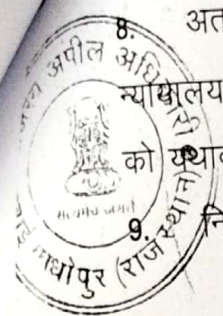 8. अत
न्यायालय
को यथाव
9. नि
अपील अधि
सत्यमेव जयते
माधोपुर (राजस्थान)